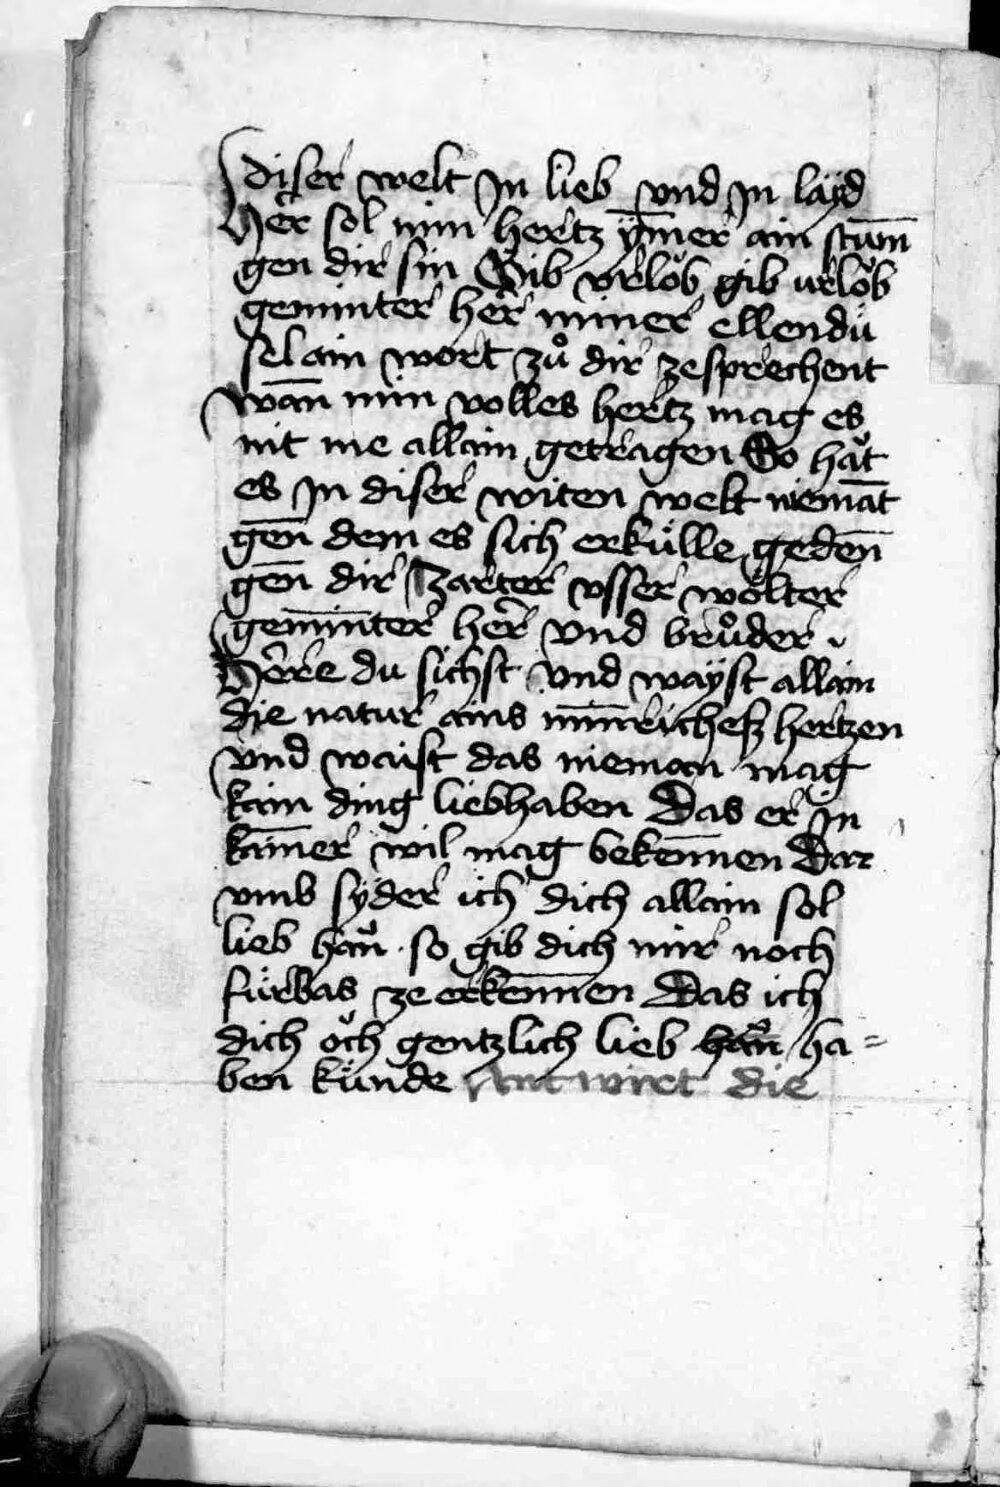 diser welt Jn lieb vnd Jn layd
Her sol min hertz ÿm̄er ain stum̄
gen dir sin Gib vrlob̊ gib urlob̊
geminter her miner ellendü
sel ain wort zů dir zesprechent
wan̄ min volles hertz mag es
nit me allain getragen So hăt
es Jn diser witen welt niemāt
gen̄ dem es sich erkülle geden̄
gen̄ dir zarter vsser wölter
gemin̄ter her vnd brůder .
Here du sichst vnd wayst allain
die natur ains min̄richesz hertzen
vnd waist das nieman mag
kain ding liebhaben Das er Jn
kām̄er wil mag beken̄nen Dar
vmb sÿder ich dich allain sol
lieb hăn . so gib dich mir noch
fürbas ze erken̄nen Das ich
dich ŏch gentzlich lieb hăn ha=
ben künde Antwirt die